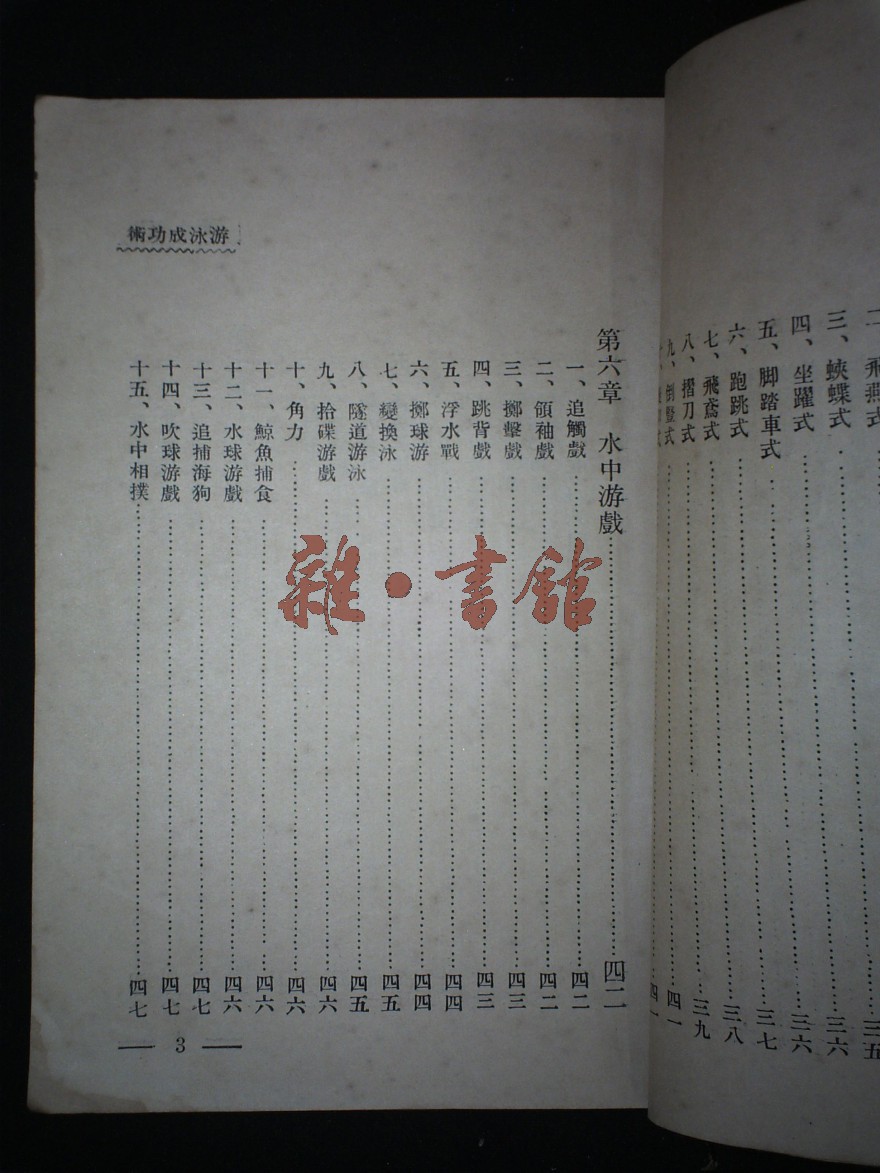 二、飛燕式 三五
三、蛺蝶式 三六
四、坐躍式 三六
五、脚踏車式 三七
六、跑跳式 三八
七、飛鳶式 三九
八、摺刀式
九、倒豎式 四一
游泳成功術
第六章 水中游戲 四二
一、追觸戲 四二
二、領袖戲 四二
三、擲擊戲 四三
四、跳背戲 四三
五、浮水戰 四四
六、擲球游 四四
七、變換泳 四五
八、隧道游泳 四五
九、拾碟游戲 四六
十、角力 四六
十一、鯨魚捕食 四六
十二、水球游戲 四六
十三、追捕海狗 四七
十四、吹球游戲 四七
十五、水中相撲 四七
3
雜·書館